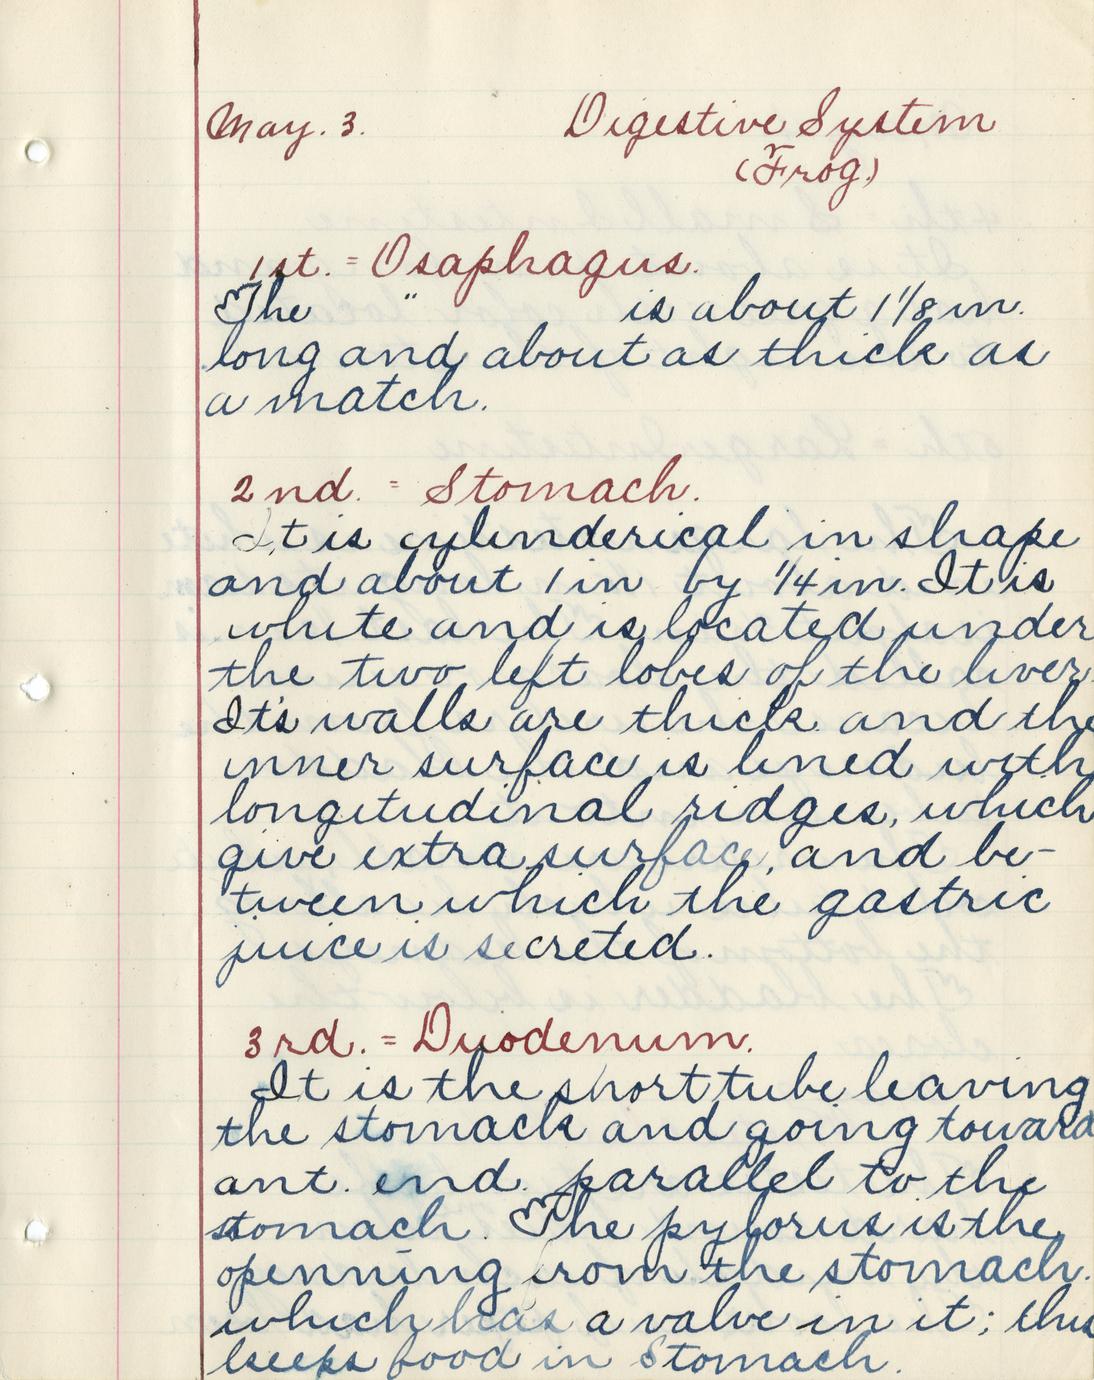 May. 3. Digestive System
(Frog)
1st. = Osaphagus.
The " is about 1 1/8 in.
long and about as thick as
a match.
2nd. = Stomach.
It is cylinderical in shape
and about 1 in by 1/4 in. It is
white and is located under
the two left lobes of the liver.
It's walls are thick and the
inner surface is lined with
longitudinal ridges, which
give extra surface, and be-
tween which the gastric
juice is secreted.
3rd. = Duodenum.
It is the short tube leaving
the stomack and going toward
ant. end. parallel to the
stomach. The pylorus is the
openning from the stomach.
which has a valve in it; this
keeps food in Stomach.